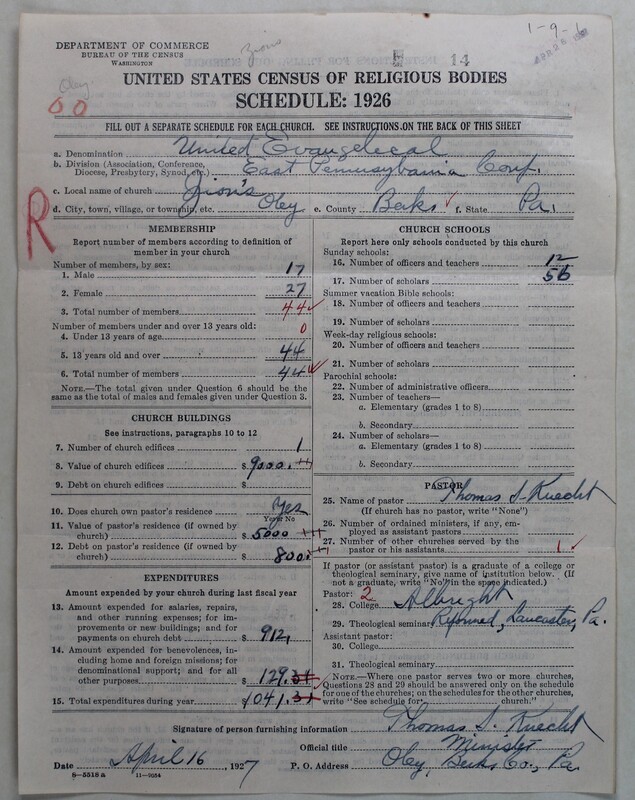 1-9-1
DEPARTMENT OF COMMERCE
BUREAU OF THE CENSUS
WASHINGTON
Zions
14
APR 26 1927
Oley
00
UNITED STATES CENSUS OF RELIGIOUS BODIES
SCHEDULE: 1926
FILL OUT A SEPARATE SCHEDULE FOR EACH CHURCH. SEE INSTRUCTIONS ON THE BACK OF THIS SHEET
a. Denomination United Evangelical
b. Division (Association, Conference, Diocese, Presbytery, Synod, etc.) East Pennsylvania Conf.
c. Local name of church Zion's
d. City, town, village, or township, etc. Oley e. County Berks f. State Pa.
R
MEMBERSHIP
Report number of members according to definition of
member in your church
Number of members, by sex:
1. Male 17
2. Female 27
3. Total number of members 44
Number of members under and over 13 years old:
4. Under 13 years of age 0
5. 13 years old and over 44
6. Total number of members 44
NOTE.—The total given under Question 6 should be
same as the total of males and females given under Question 3.
CHURCH BUILDINGS
See instructions, paragraphs 10 to 12
7. Number of church edifices 1
8. Value of church edifices $9000.
9. Debt on church edifices $
10. Does church own pastor's residence? Yes
Yes or No
11. Value of pastor's residence (if owned by
church) $5000
12. Debt on pastor's residence (if owned by
church) $800.
EXPENDITURES
Amount expended by your church during last fiscal year
13. Amount expended for salaries, repairs,
and other running expenses; for im-
provements or new buildings; and for
payments on church debt $912.
14. Amount expended for benevolences,
including home and foreign missions; for
denominational support; and for all
other purposes $129.31
15. Total expenditures during year $1041.31
CHURCH SCHOOLS
Report here only schools conducted by this church
Sunday schools:
16. Number of officers and teachers 12
17. Number of scholars 56
Summer vacation Bible schools:
18. Number of officers and teachers
19. Number of scholars
Week-day religious schools:
20. Number of officers and teachers
21. Number of scholars
Parochial schools:
22. Number of administrative officers
23. Number of teachers—
a. Elementary (grades 1 to 8)
b. Secondary
24. Number of scholars—
a. Elementary (grades 1 to 8)
b. Secondary
PASTOR
25. Name of pastor Thomas S. Knecht
(If church has no pastor, write "None")
26. Number of ordained ministers, if any, em-
ployed as assistant pastors
27. Number of other churches served by the
pastor or his assistants 1
If pastor (or assistant pastor) is a graduate of a college or
theological seminary, give name of institution below. (If
not a graduate, write "No" in the space indicated.)
Pastor: 2
28. College Albright
29. Theological seminary Reformed, Lancaster, Pa.
Assistant pastor:
30. College
31. Theological seminary
NOTE.—Where one pastor serves two or more churches,
Questions 28 and 29 should be answered only on the schedule
for one of the churches; on the schedules for the other churches,
write "See schedule for church."
Signature of person furnishing information Thomas S. Knecht
Official title Minister
Date April 16, 1927 P. O. Address Oley, Berks Co., Pa.
8-5518 a 11-9054